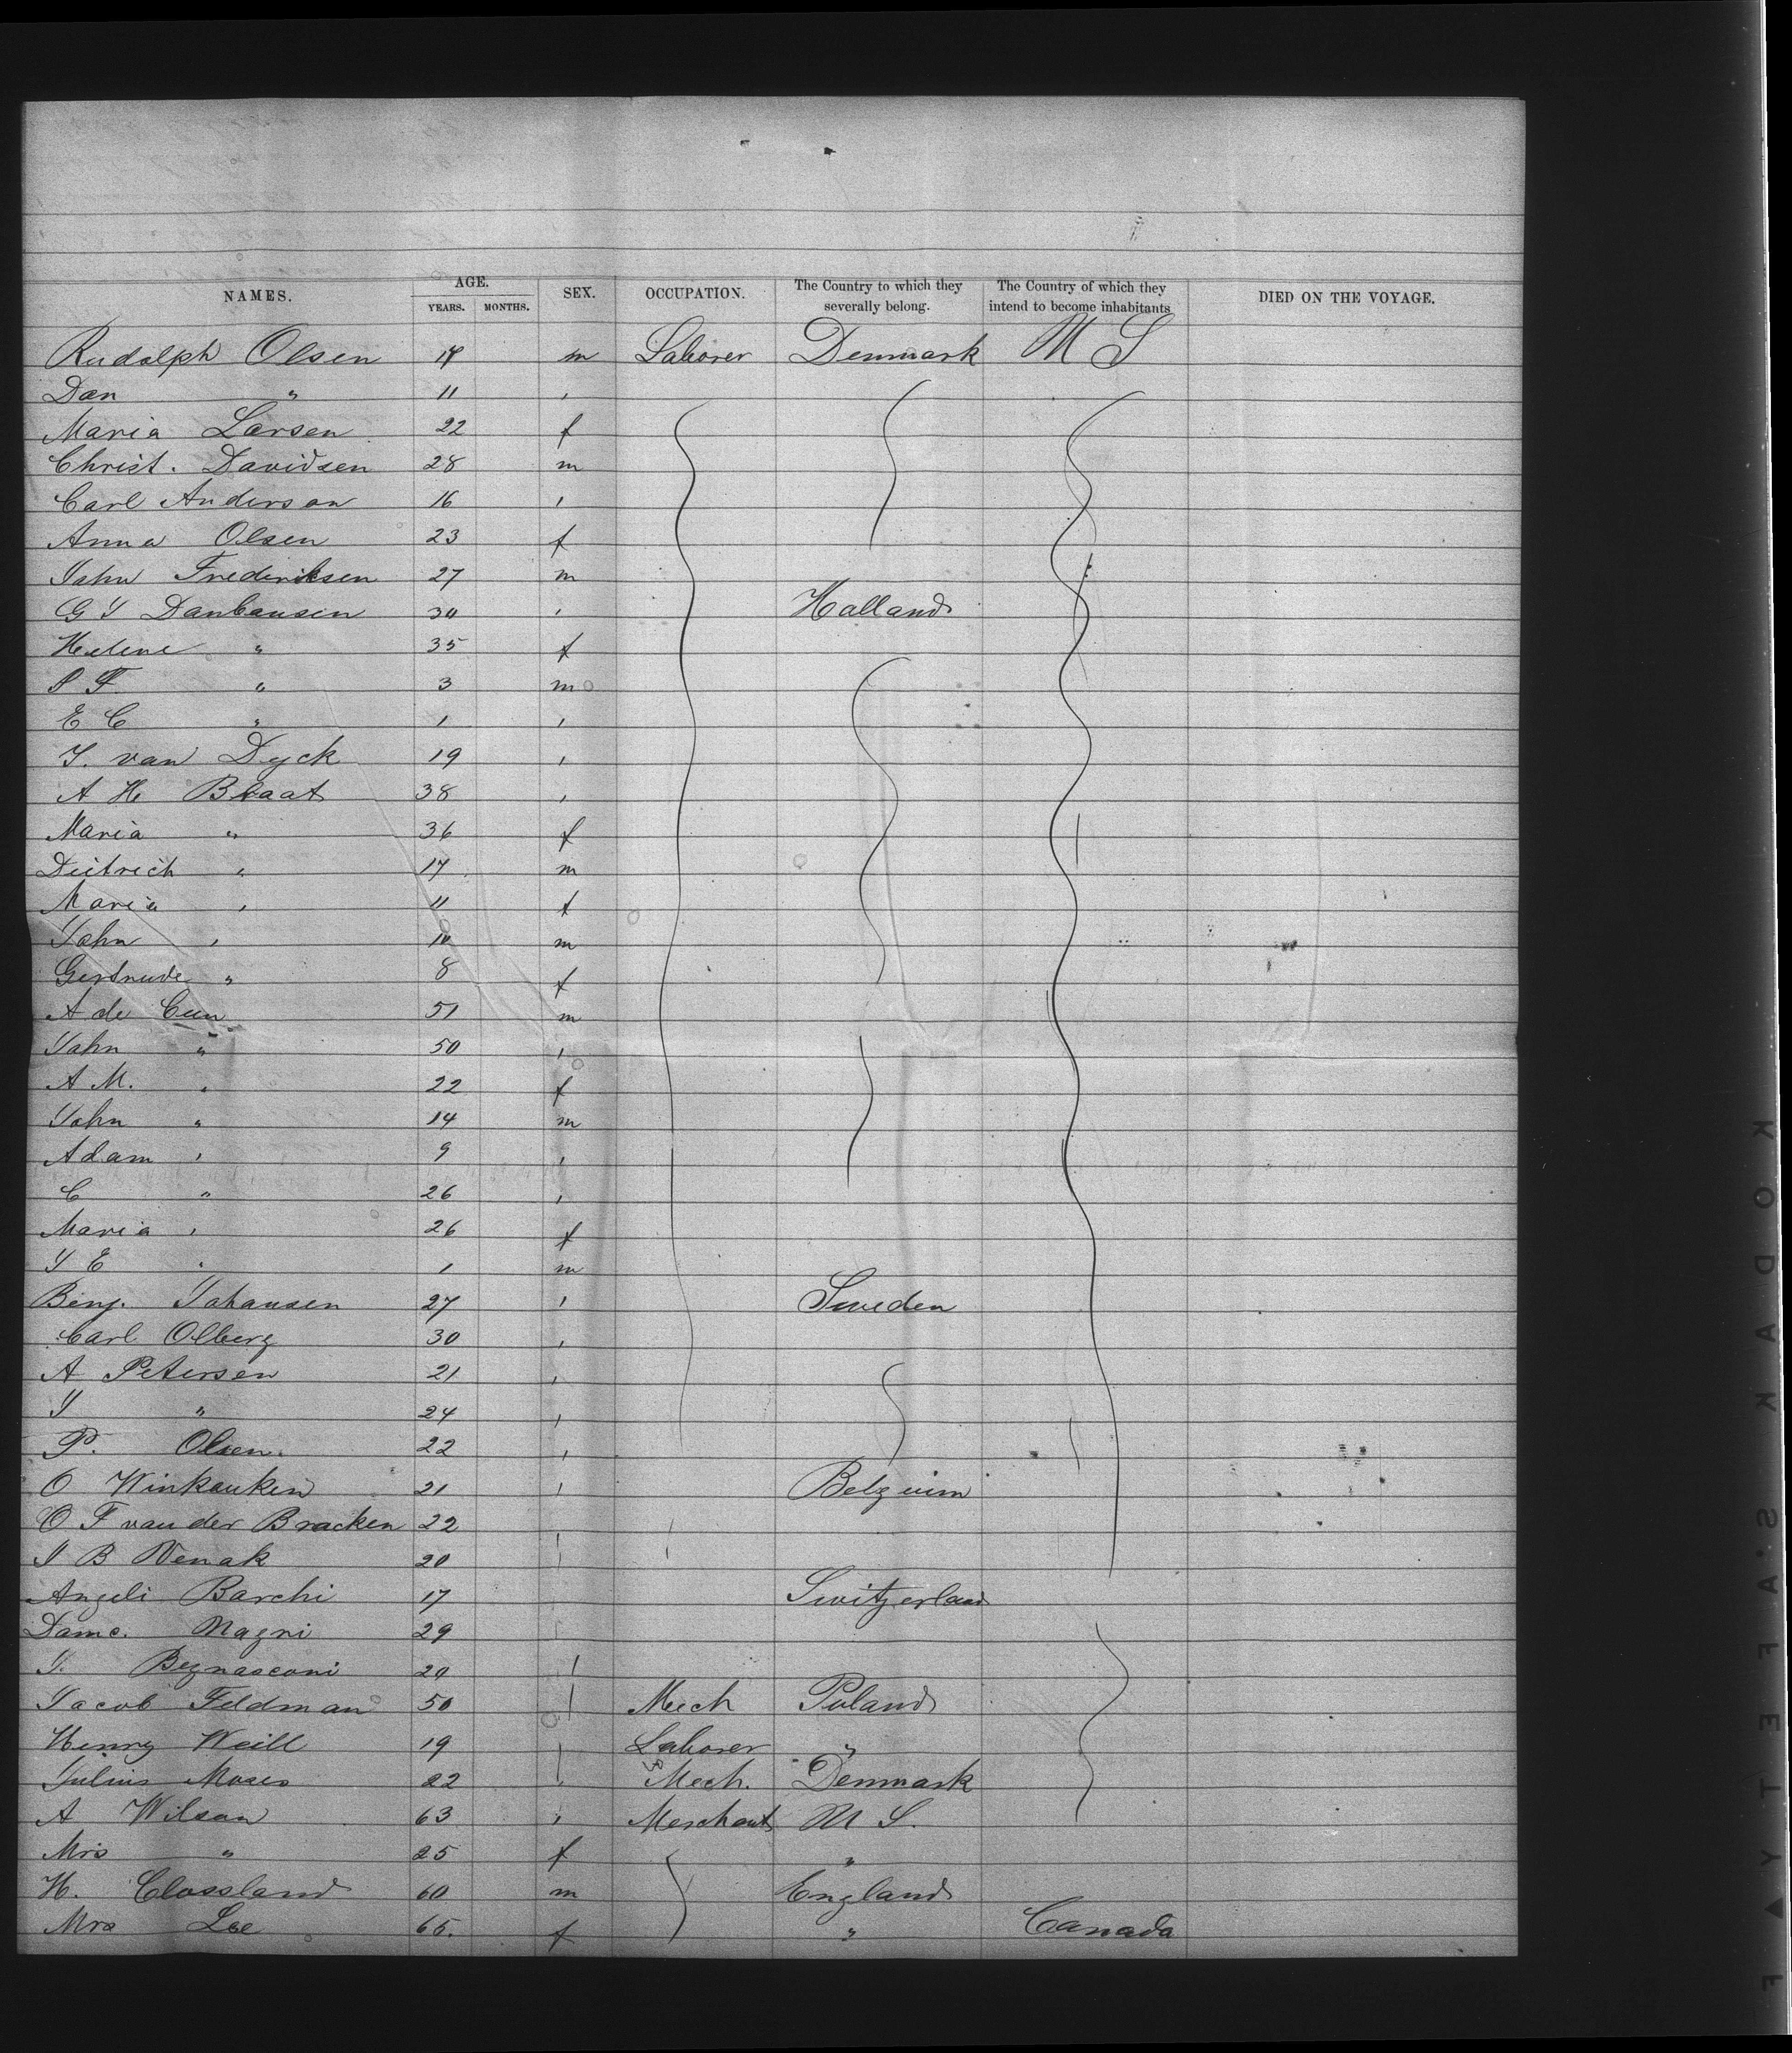 NAMES. AGE. YEARS. MONTHS. SEX. OCCUPATION. The Country to which they severally belong. The Country of which they intend to become inhabitants DIED ON THE VOYAGE.
Rudolph Olsen m Laborer Denmark U S
Dan " 11 ,
Maria Larsen 22 f
Christ. Davidsen 28 m
Carl Anderson 16 ,
Anna Olsen 23 f
John Frederiksen 27 m
G J Danbausen 30 , Holland
Helene " 35 f
P F " 3 m
E C " 1 ,
J. van Dyck 19 ,
A H Blaat 38 ,
Maria " 36 f
Dietrich " 17 m
Maria , 11 f
John , 10 m
Gertrude " 8 f
A de Cun 51 m
John " 50 ,
A M. " 22 f
John " 14 m
Adam , 9 ,
C " 26 ,
Maria , 26 f
J E " 1 m
Benj. Johansen 27 , Sweden
Carl Olberg 30 ,
A Petersen 21 ,
J " 24 ,
P. Olsen. 22 ,
O Winkauken 21 , Belgium
O F van der Bracken 22 ,
J B Wenak 20
Angeli Barchi 17 Switzerland
Dame. Magni 29
J. Begnasconi 20
Jacob Feldman 50 Mech Poland
Henry Weill 19 Laborer "
Julius Moses 22 , Mech. Denmark
A Wilson 63 , Merchant U S.
Mrs " 25 f "
H. Clossland 60 m England
Mrs Lee 65. f " Canada
KODAK SAFETY F